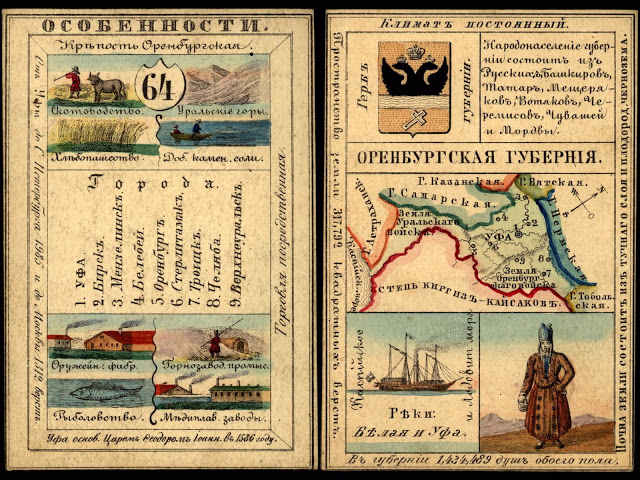 ОСОБЕННОСТИ.
Крѣпость Оренбургская.
64
Скотоводство.
Уральскіе горы.
Хлѣбопашество.
Доб. камен. соли.
Города.
1. УФА
2. Бирскъ.
3. Мензелинскъ.
4. Белебей.
5. Оренбургъ.
6. Стерлитамакъ.
7. Троицкъ.
8. Челяба.
9. Верхнеуральскъ.
Оружейн. фабр.
Горнозавод. промыс.
Рыболовство.
Мѣдиплав. заводы.
Уфа основ. Царемъ Ѳеодоромъ Іоанн. въ 1586 году.
Отъ Уфы до С. Петербурга 1985 и до Москвы 1312 верстъ
Торговля посредственная.
Климатъ постоянный.
Гербъ
губерніи.
Народонаселеніе губер-
ніи состоитъ изъ
Русскихъ, Башкировъ,
Татаръ, Мещеря-
ковъ, Вотяковъ, Че-
ремисовъ, Чувашей
и Мордвы.
ОРЕНБУРГСКАЯ ГУБЕРНІЯ.
Г. Казанская.
Г. Вятская.
Г. Самарская.
Г. Пермская.
Г. Астраханск.
Земля
Уральскаго
войска.
УФА
Земля
Оренбург-
скаго войска
Каспійск. море
СТЕПЬ КИРГИЗЪ-КАИСАКОВЪ.
Г. Тоболь-
ская.
Каспійское
и Ледовит. моря.
Рѣки:
Бѣлая и Уфа.
Въ губерніи 1,434,489 душъ обоего пола.
Пространство земли 317,792 квадратныхъ верстъ.
Почва земли состоитъ изъ тучнаго слоя и плодород. чернозема.